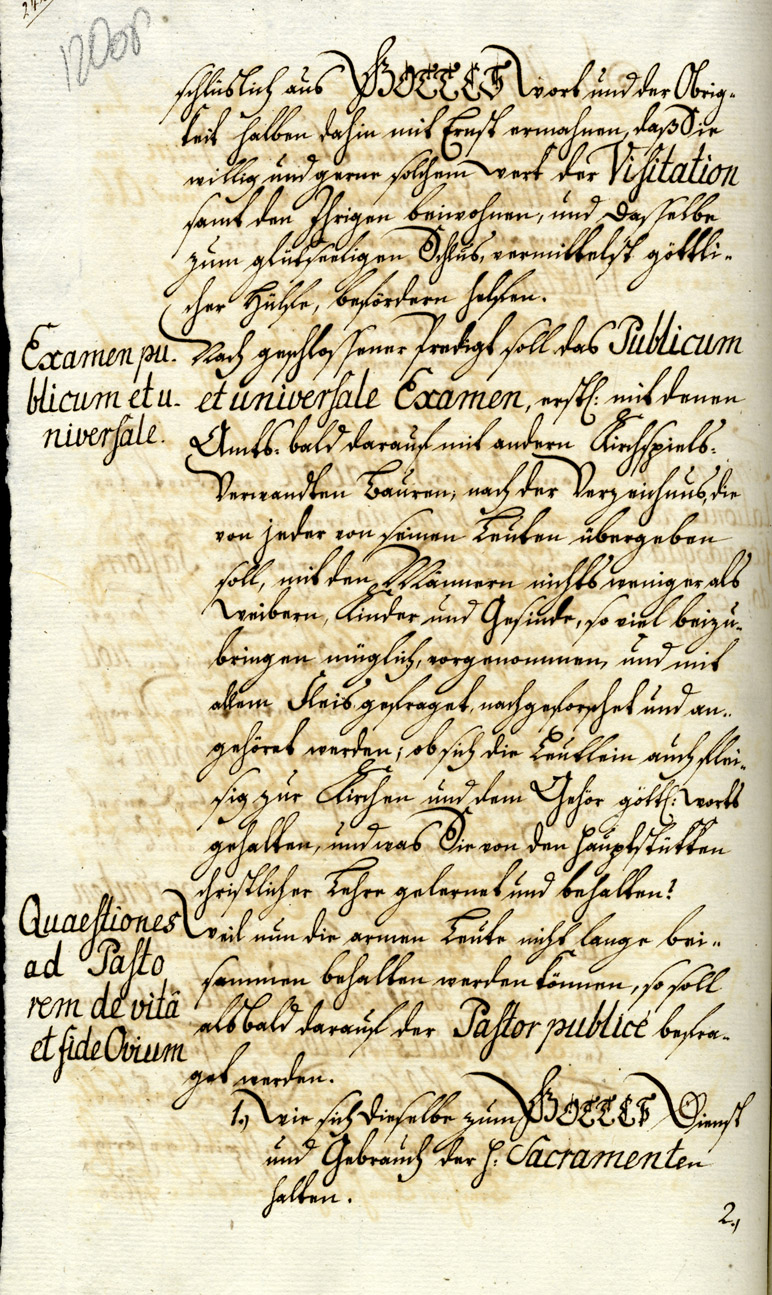 schlüslich aus GOTTES wort und der Obrig-
keit halben dahin mit Ernst ermahnen, daß Sie
willig und gerne solchem werk der Visitation
samt den Ihrigen beiwohnen, und dasselbe
zum glükseeligen Schlus, vermittelst göttli-
cher Hülfe, befördern helfen.
Examen pu-
blicum et u-
niversale.
Nach geschlossener Predigt soll das Publicum
et universale Examen, erstl: mit denen
Amts- bald darauf mit andern Kirchspiels-
Verwandten Bauren, nach der Verzeichnus, die
von jeder von seinen Leuten übergeben
soll, mit den Männern nichts weniger als
Weibern, Kinder und Gesinde, so viel beizu-
bringen müglich, vorgenommen, und mit
allem Fleis gefraget, nachgeforschet und an-
gehöret werden; ob sich die Leutlein auch flei-
sig zur Kirchen und dem Gehör göttl: worts
gehalten, und was Sie von den Hauptstükken
christlicher Lehre gelernet und behalten?
Quaestiones
ad Pasto
rem de vitâ
et fide Ovium
Weil nun die armen Leute nicht lange bei-
sammen behalten werden können, so soll
alsbald darauf der Pastor publicè befra-
get werden.
1., Wie sich dieselbe zum GOTTES Dienst
und Gebrauch der H: Sacramenten
halten.
2.,